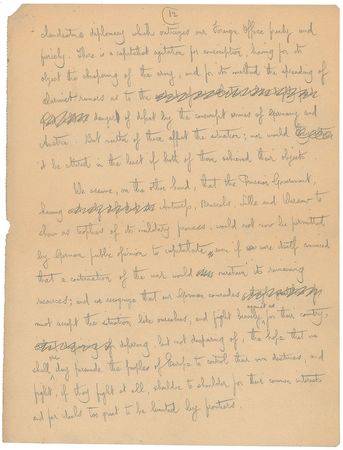 12
clandestine diplomacy which outrages our Foreign Office freely and
fiercely. There is a capitalist agitation for conscription, having for its
object the cheapening of the army, and for its method the spreading of
alarmist rumors as to the
danger of defeat by the conscript armies of Germany and
Austria. But neither of these affect the situation; nor would
it be altered in the least if both of them achieved their objects.
We assume, on the other hand, that the Prussian Government,
having Antwerp, Brussels, Lille and Warsaw to
show as trophies of its military prowess, would not now be permitted
by German public opinion to capitulate, even if it were itself convinced
that a continuation of the war would its remaining
resources; and we recognize that our German comrades
must accept the situation like ourselves, and fight against us for their country,
deferring, but not despairing of, the hope that we
shall one day persuade the peoples of Europe to control their own destinies, and
fight, if they fight at all, shoulder to shoulder for their common interests
and for ideals too great to be limited by frontiers.